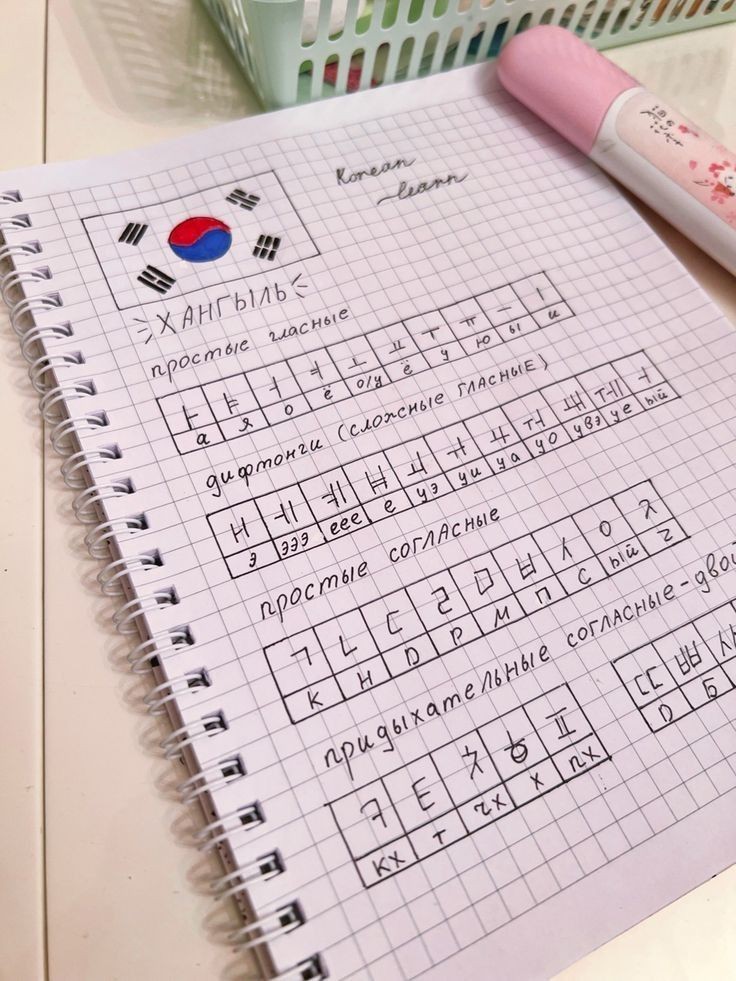 Korean
learn
ХАНГЫЛЬ
простые гласные
ㅏ ㅑ ㅓ ㅕ ㅗ ㅛ ㅜ ㅠ ㅡ ㅣ
а я о ё о/у ё у ю ы и
дифтонги (сложные гласные)
ㅐ ㅔ ㅖ ㅒ ㅚ ㅟ ㅘ ㅝ ㅙ ㅞ ㅢ
э эээ еее е уэ уи уа уо увэ уе ый
простые согласные
ㄱ ㄴ ㄷ ㄹ ㅁ ㅂ ㅅ ㅇ ㅈ
к н D р м п с ый г
придыхательные согласные - двой
ㅋ ㅌ ㅊ ㅎ ㅍ
кх т чх х пх
ㄸ ㅃ ㅆ
D Б